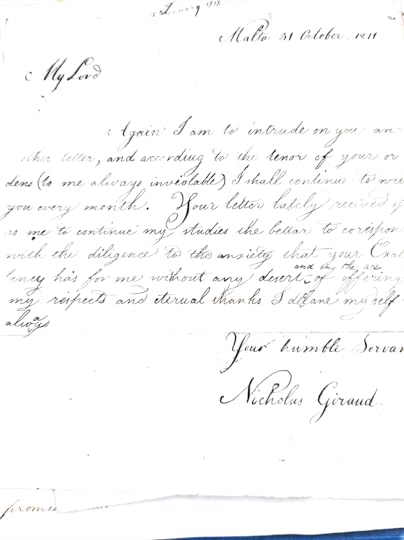 January 181
Malta 31 October. 1811
My Lord
Again I am to intrude on you an-
other letter, and according to the tenor of your or
ders (to me always inviolable) I shall continue to wri
you every month. Your letter lately received
us me to continue my studies the better to corespon
with the diligence to the anxiety that your Exal
lency has for me without any desert, of offering
and by the
my respects and eternal thanks I de ane my self
always
Your humble Servan
Nicholas Giraud
promis